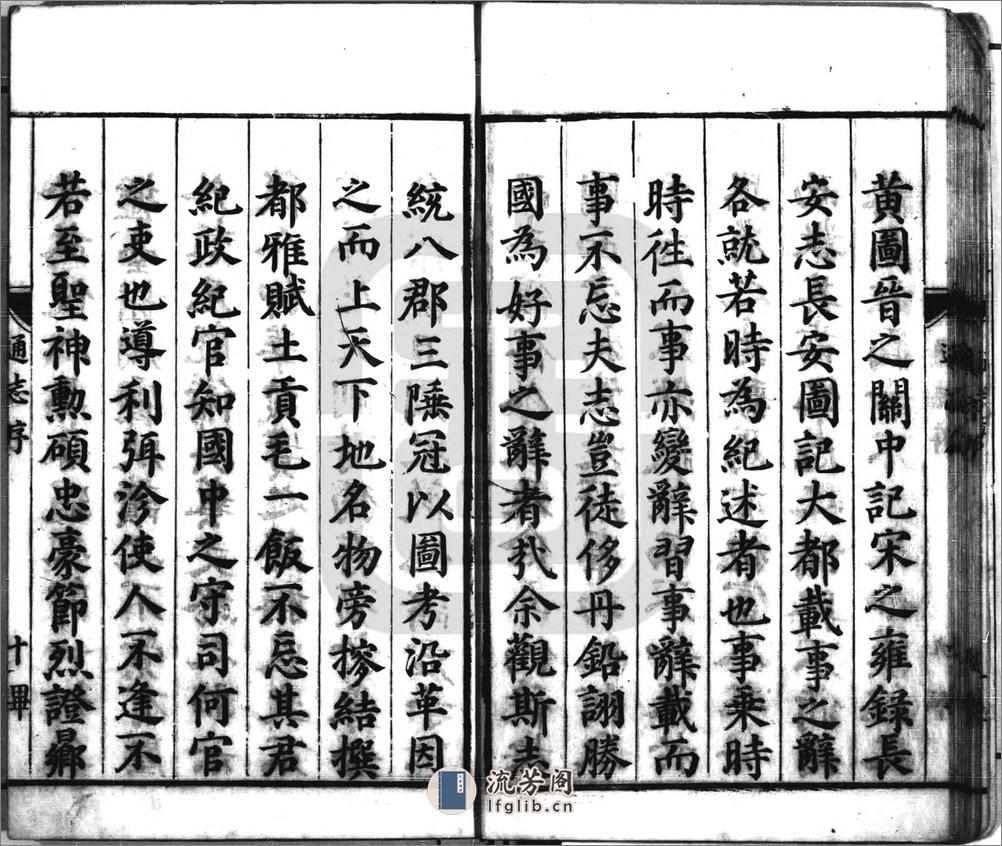 黄圖晉之關中記宋之雍錄長
安志長安圖記大都載事之辭
各就若時為紀述者也事乗時
時徃而事亦變辭習事辭載而
事不忘夫志豈徒侈丹鉛詡勝
國為好事之辭者㢤余觀斯志
統八郡三陲冠以圖考沿革因
之而上天下地名物旁摉結撰
都雅賦土貢毛一飯不忘其君
紀政紀官知國中之守司何官
之吏也導利弭沴使人不逢不
若至聖神勲碩忠豪節烈證鄉
通志序
十
流芳阁
lfglib.cn